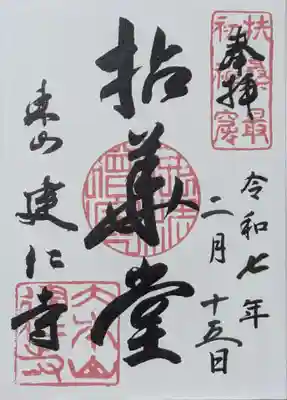 奉拝
令和七年
二月十五日
拈華堂
東山
建仁寺
扶桑最
初禅窟